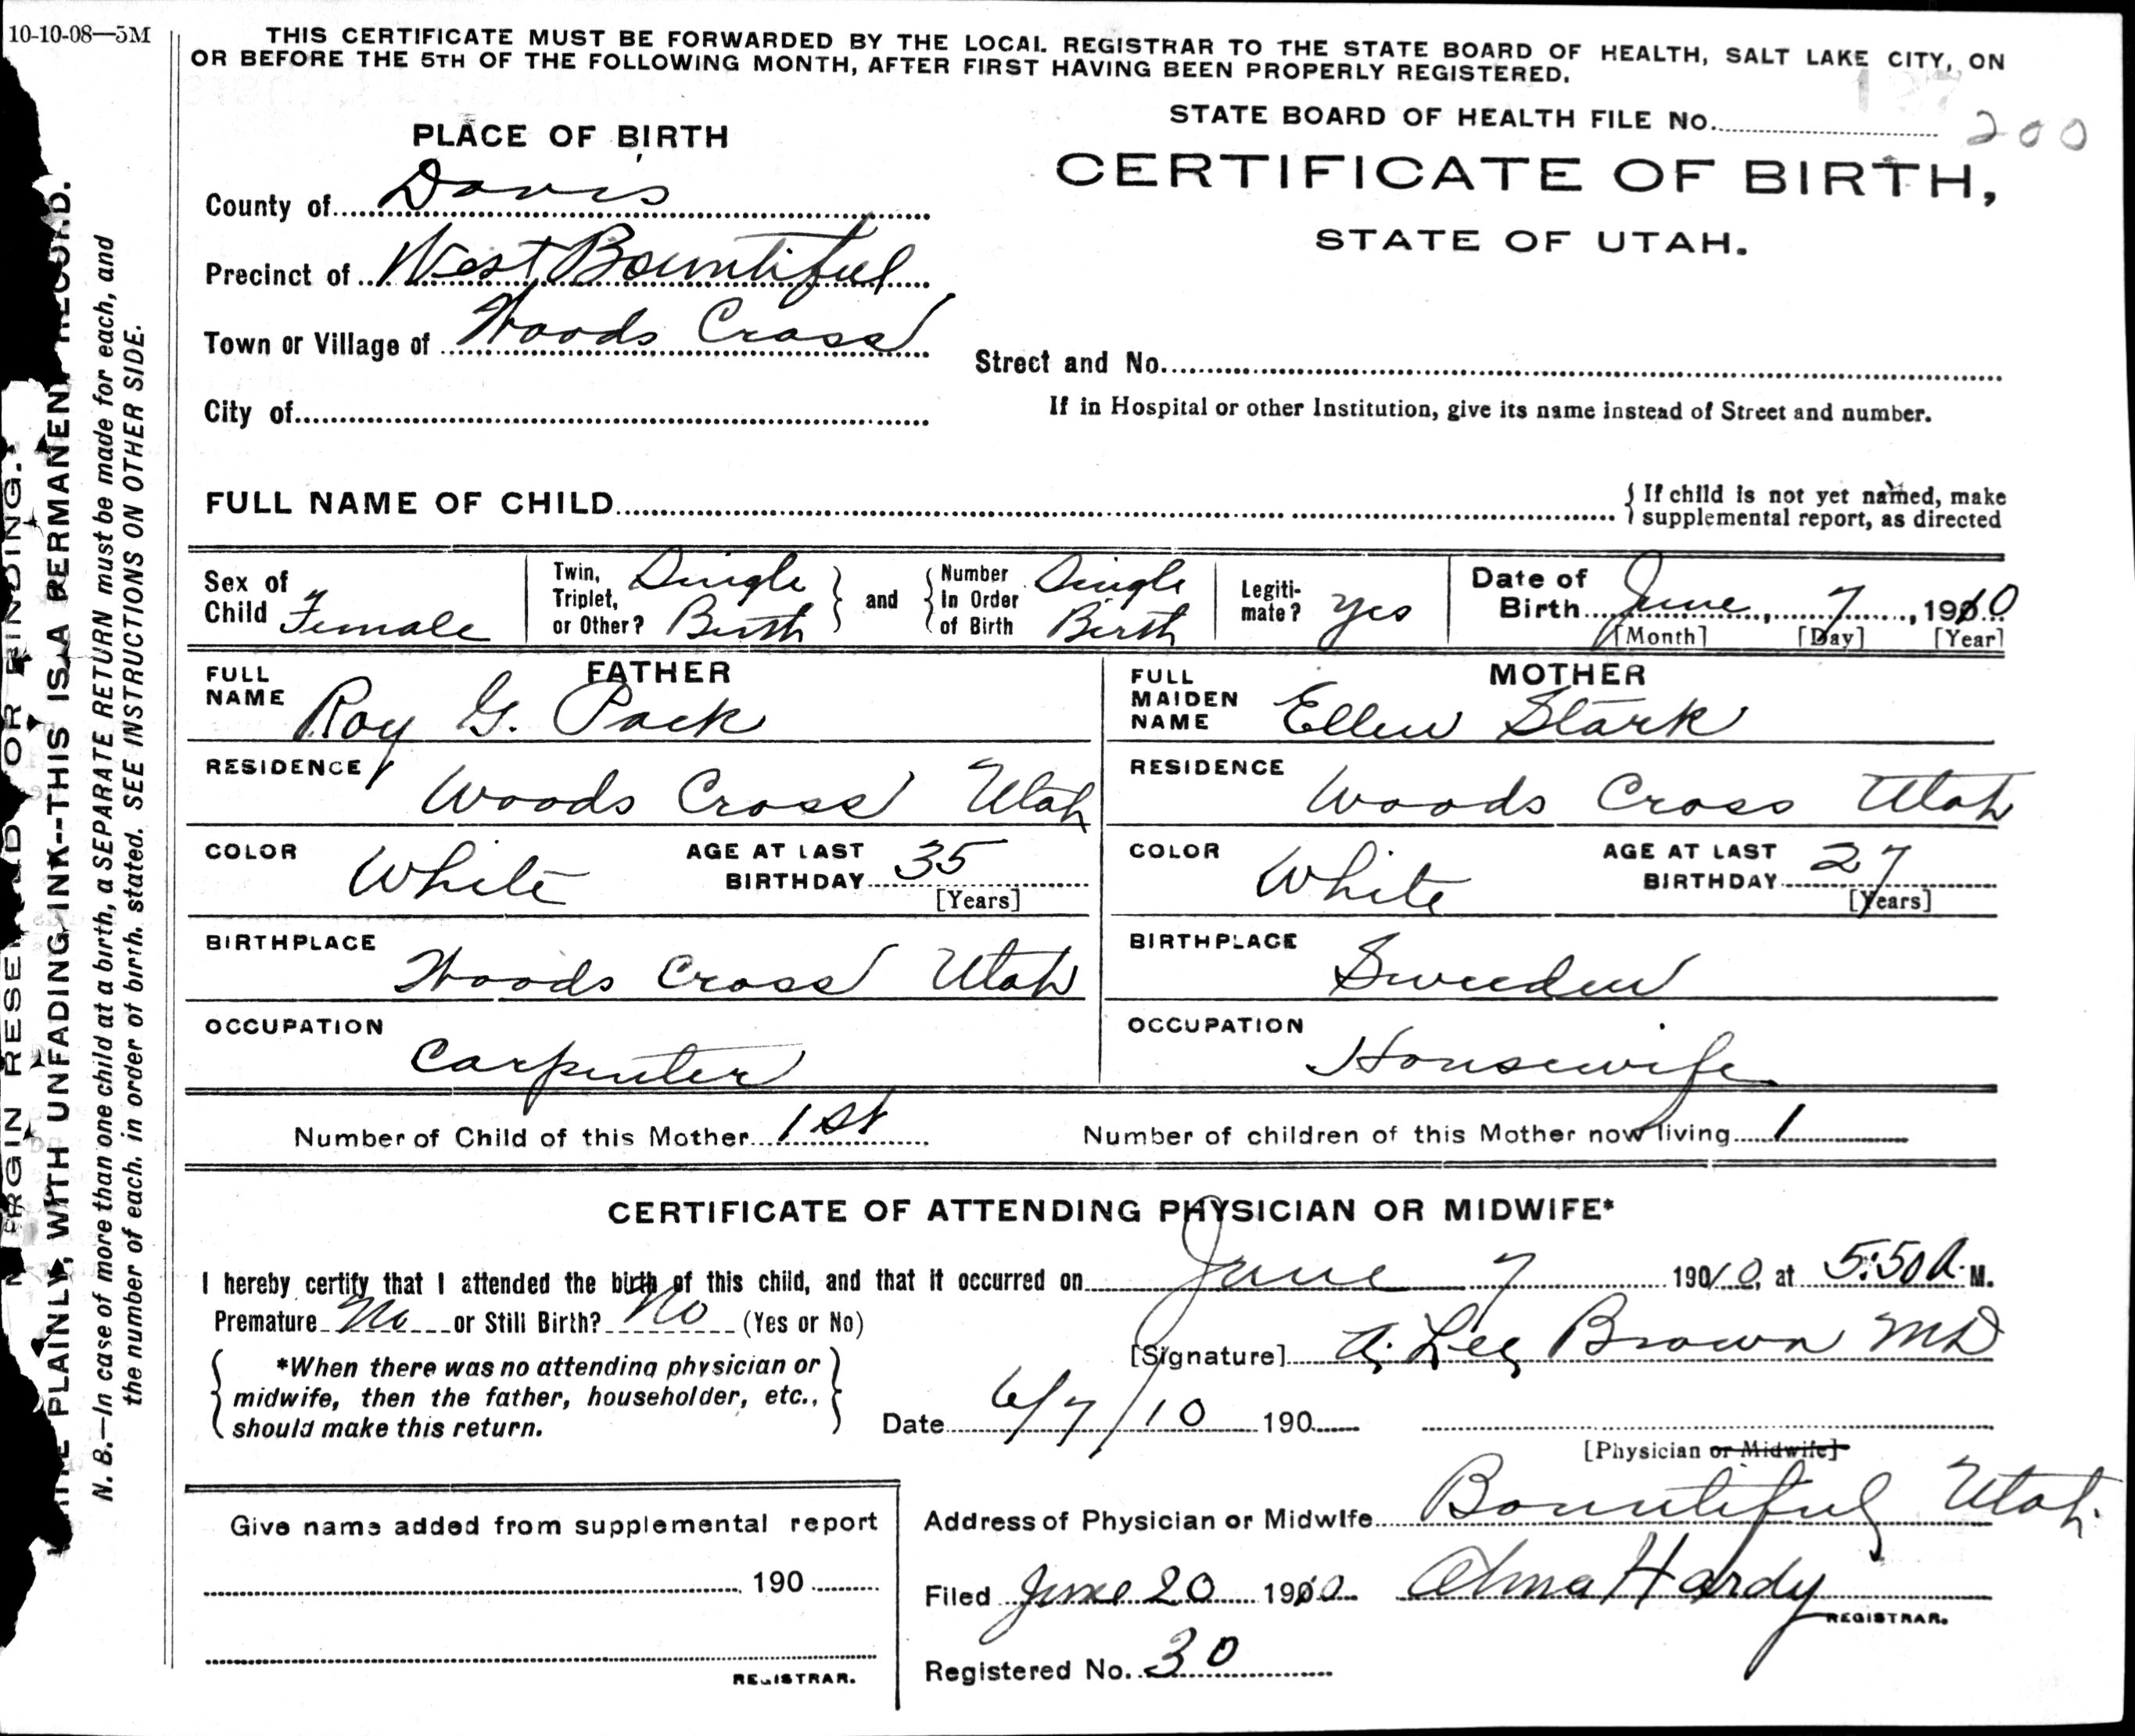 10-10-08—5M
THIS CERTIFICATE MUST BE FORWARDED BY THE LOCAL REGISTRAR TO THE STATE BOARD OF HEALTH, SALT LAKE CITY, ON
OR BEFORE THE 5TH OF THE FOLLOWING MONTH, AFTER FIRST HAVING BEEN PROPERLY REGISTERED.
STATE BOARD OF HEALTH FILE NO. 200
PLACE OF BIRTH
CERTIFICATE OF BIRTH,
STATE OF UTAH.
County of Davis
Precinct of West Bountiful
Town or Village of Woods Cross
Street and No.
City of
If in Hospital or other Institution, give its name instead of Street and number.
FULL NAME OF CHILD
{ If child is not yet named, make
supplemental report, as directed
Sex of
Child Female
Twin,
Triplet,
or Other? Single Birth
and
Number
In Order
of Birth Single Birth
Legiti-
mate? Yes
Date of
Birth June, 7, 1910
[Month] [Day] [Year]
FATHER
FULL
NAME Roy G. Pack
RESIDENCE Woods Cross Utah
COLOR White AGE AT LAST
BIRTHDAY 35
[Years]
BIRTHPLACE Woods Cross Utah
OCCUPATION Carpenter
MOTHER
FULL
MAIDEN
NAME Ellen Stark
RESIDENCE Woods Cross Utah
COLOR White AGE AT LAST
BIRTHDAY 27
[Years]
BIRTHPLACE Sweeden
OCCUPATION Housewife
Number of Child of this Mother 1st
Number of children of this Mother now living 1
CERTIFICATE OF ATTENDING PHYSICIAN OR MIDWIFE*
I hereby certify that I attended the birth of this child, and that it occurred on June 7 1910, at 5:50 A. M.
Premature No or Still Birth? No (Yes or No)
[Signature] A. Lee Brown MD
*When there was no attending physician or
midwife, then the father, householder, etc.,
should make this return.
Date 6/7/10 190
[Physician or Midwife]
Address of Physician or Midwife Bountiful Utah.
Filed June 20 1910 Alma Hardy
REGISTRAR.
Registered No. 30
Give name added from supplemental report
190
REGISTRAR.
PLAINLY, WITH UNFADING INK--THIS IS A PERMANENT RECORD.
N. B.—In case of more than one child at a birth, a SEPARATE RETURN must be made for each, and
the number of each, in order of birth, stated. SEE INSTRUCTIONS ON OTHER SIDE.